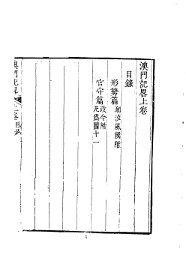 澳門記畧上卷
目錄
形勢篇潮汐風候附
官守篇政令附
凡為圖十一
澳門記畧